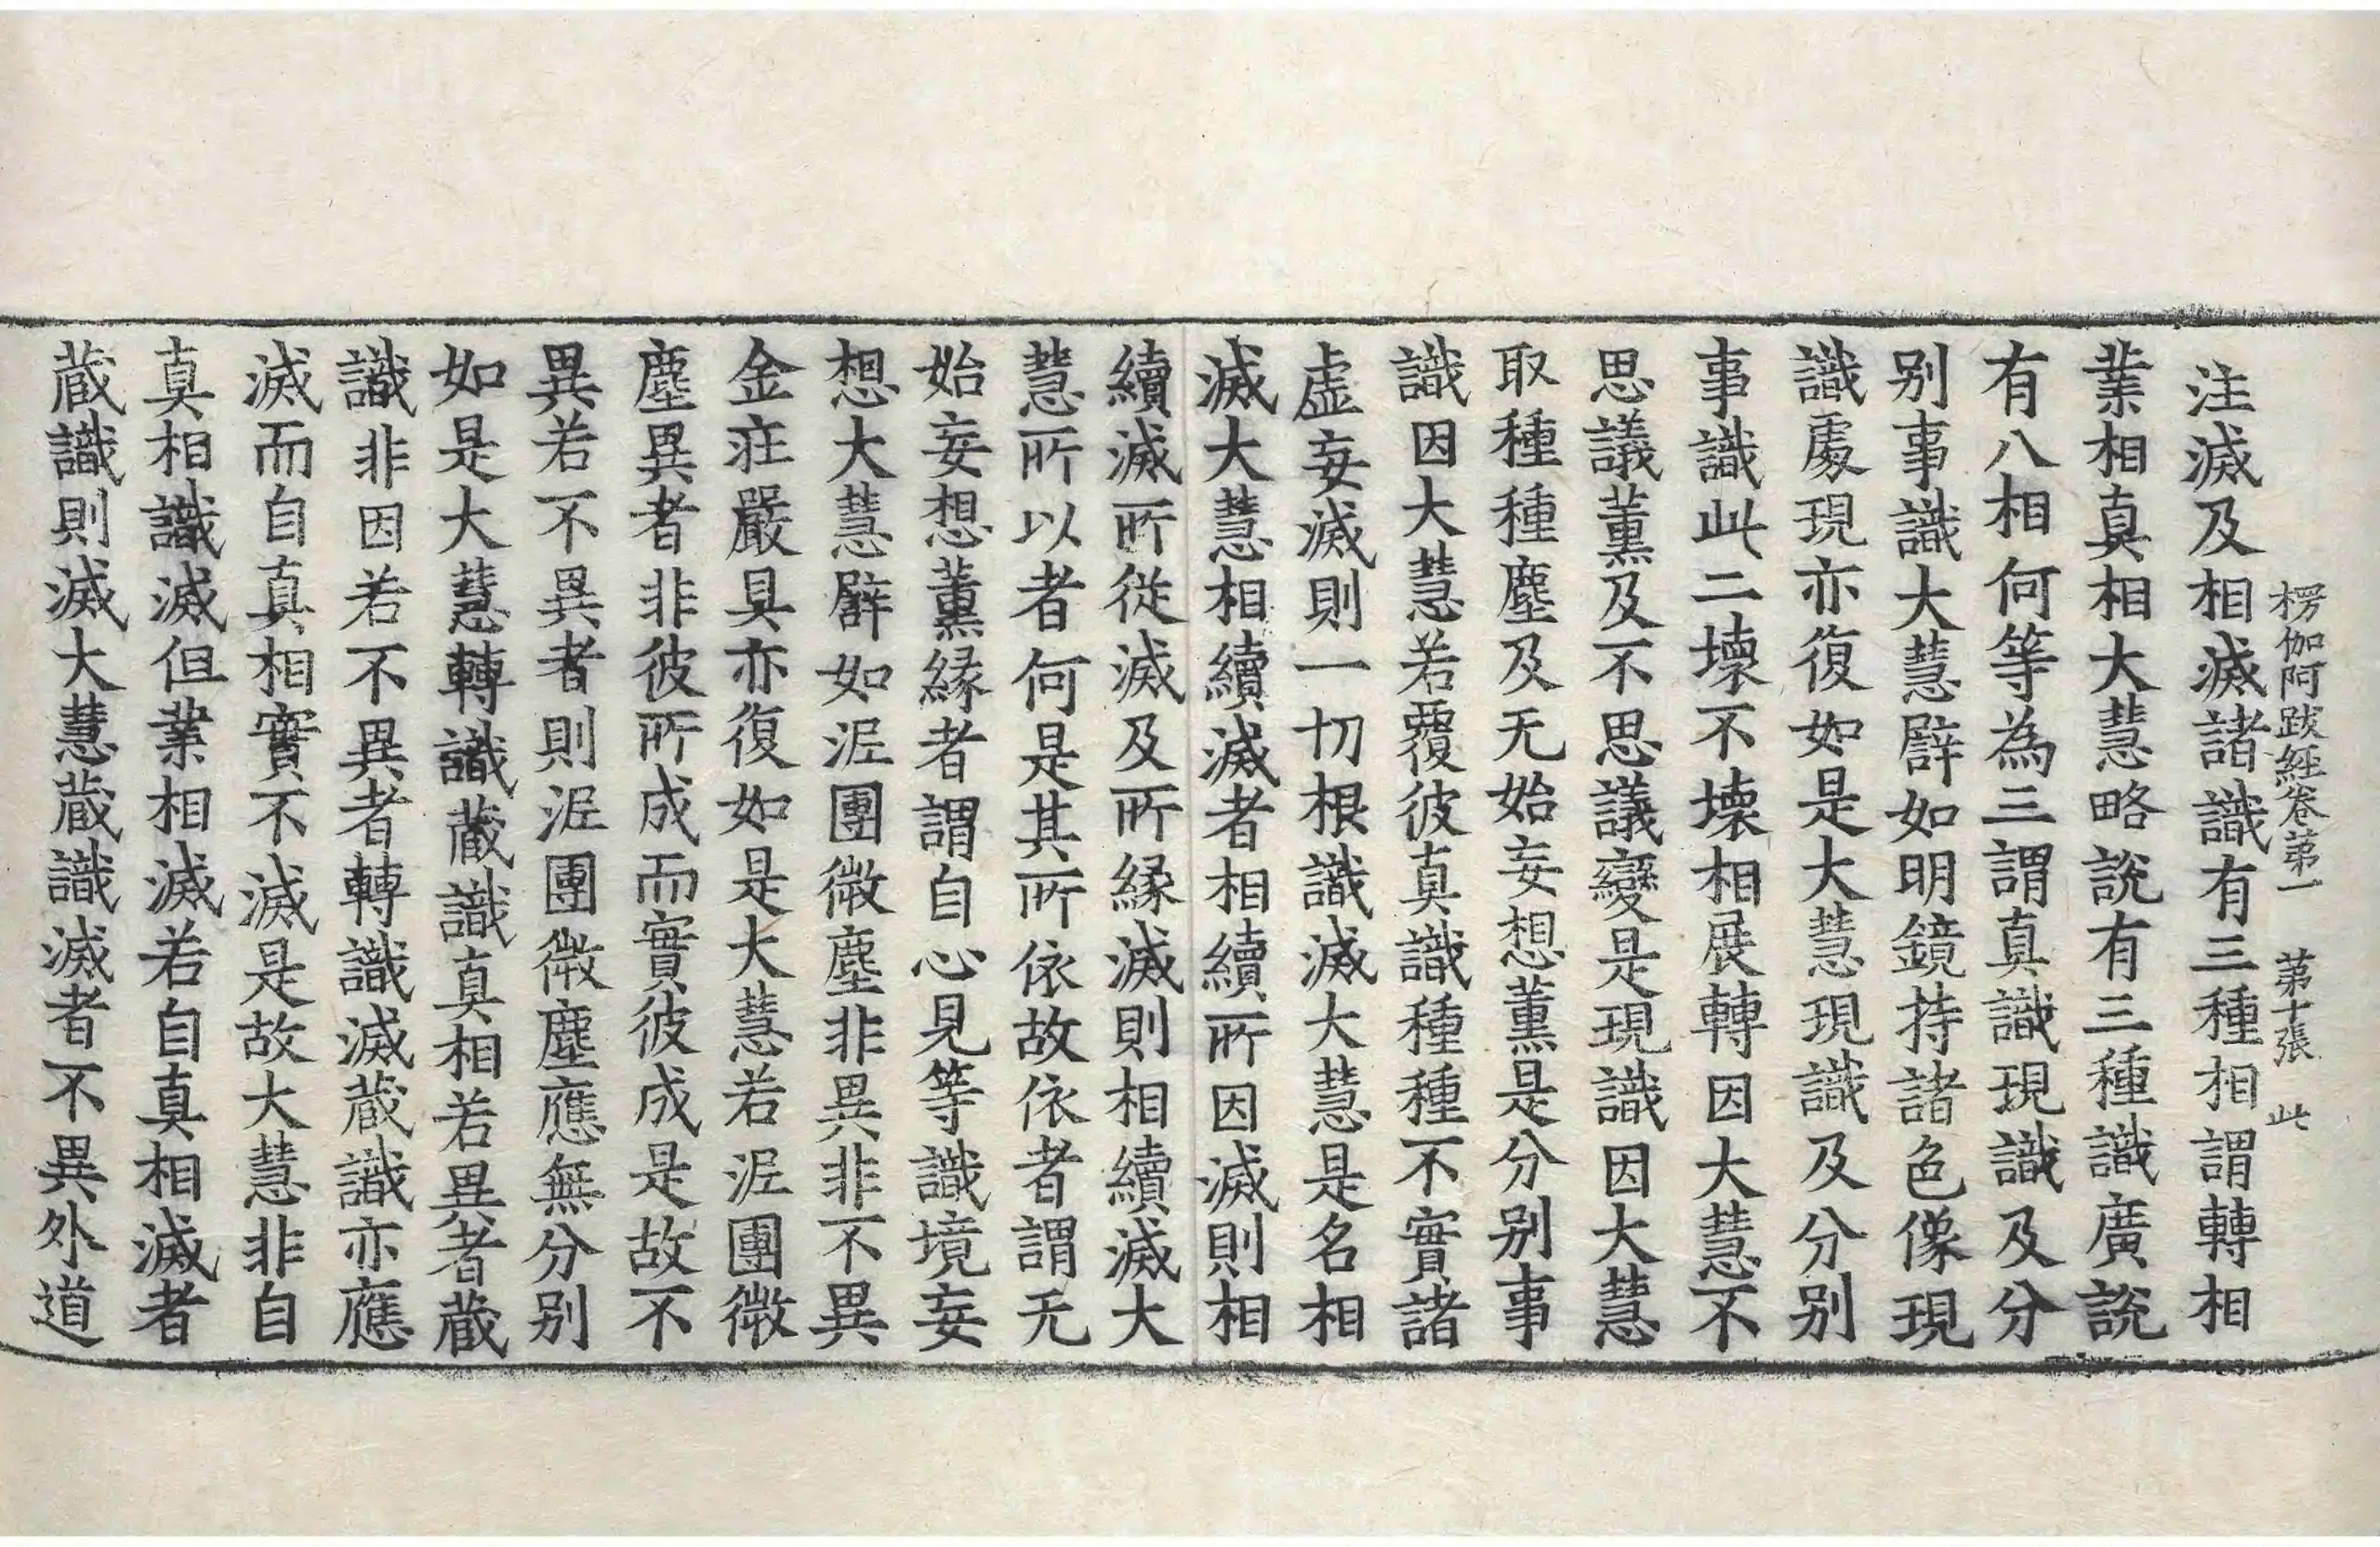 楞伽阿跋經卷第一　第十張　此
注滅及相滅諸識有三種相謂轉相
業相真相大慧略說有三種識廣說
有八相何等為三謂真識現識及分
别事識大慧譬如明鏡持諸色像現
識處現亦復如是大慧現識及分别
事識此二壞不壞相展轉因大慧不
思議薰及不思議變是現識因大慧
取種種塵及无始妄想薰是分别事
識因大慧若覆彼真識種種不實諸
虛妄滅則一切根識滅大慧是名相
滅大慧相續滅者相續所因滅則相
續滅所從滅及所緣滅則相續滅大
慧所以者何是其所依故依者謂无
始妄想薰緣者謂自心見等識境妄
想大慧譬如泥團微塵非異非不異
金莊嚴具亦復如是大慧若泥團微
塵異者非彼所成而實彼成是故不
異若不異者則泥團微塵應無分别
如是大慧轉識藏識真相若異者藏
識非因若不異者轉識滅藏識亦應
滅而自真相實不滅是故大慧非自
真相識滅但業相滅若自真相滅者
藏識則滅大慧藏識滅者不異外道